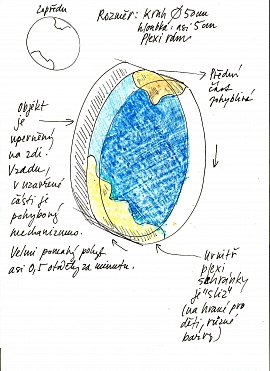 Zepředu
Rozměr: Kruh Ø 50cm
hloubka: asi 5cm
Plexi rám
Přední
část
pohyblivá
Objekt
je
upevněný
na zdi.
Vzadu,
v uzavřené
části je
pohybový
mechanizmus.
Velmi pomalý pohyb
asi 0,5 otáčky za minutu.
Uvnitř
plexi
schránky
je "sliz"
(na hraní pro
děti, různé
barvy)